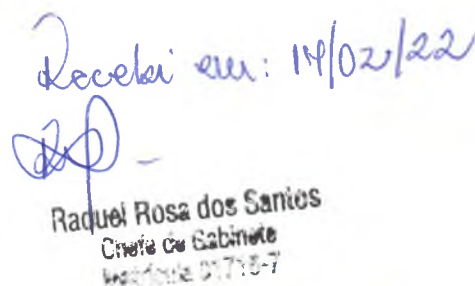 Recebi em: 14/02/22
Raquel Rosa dos Santos
Chefe de Gabinete
Matrícula 01716-7